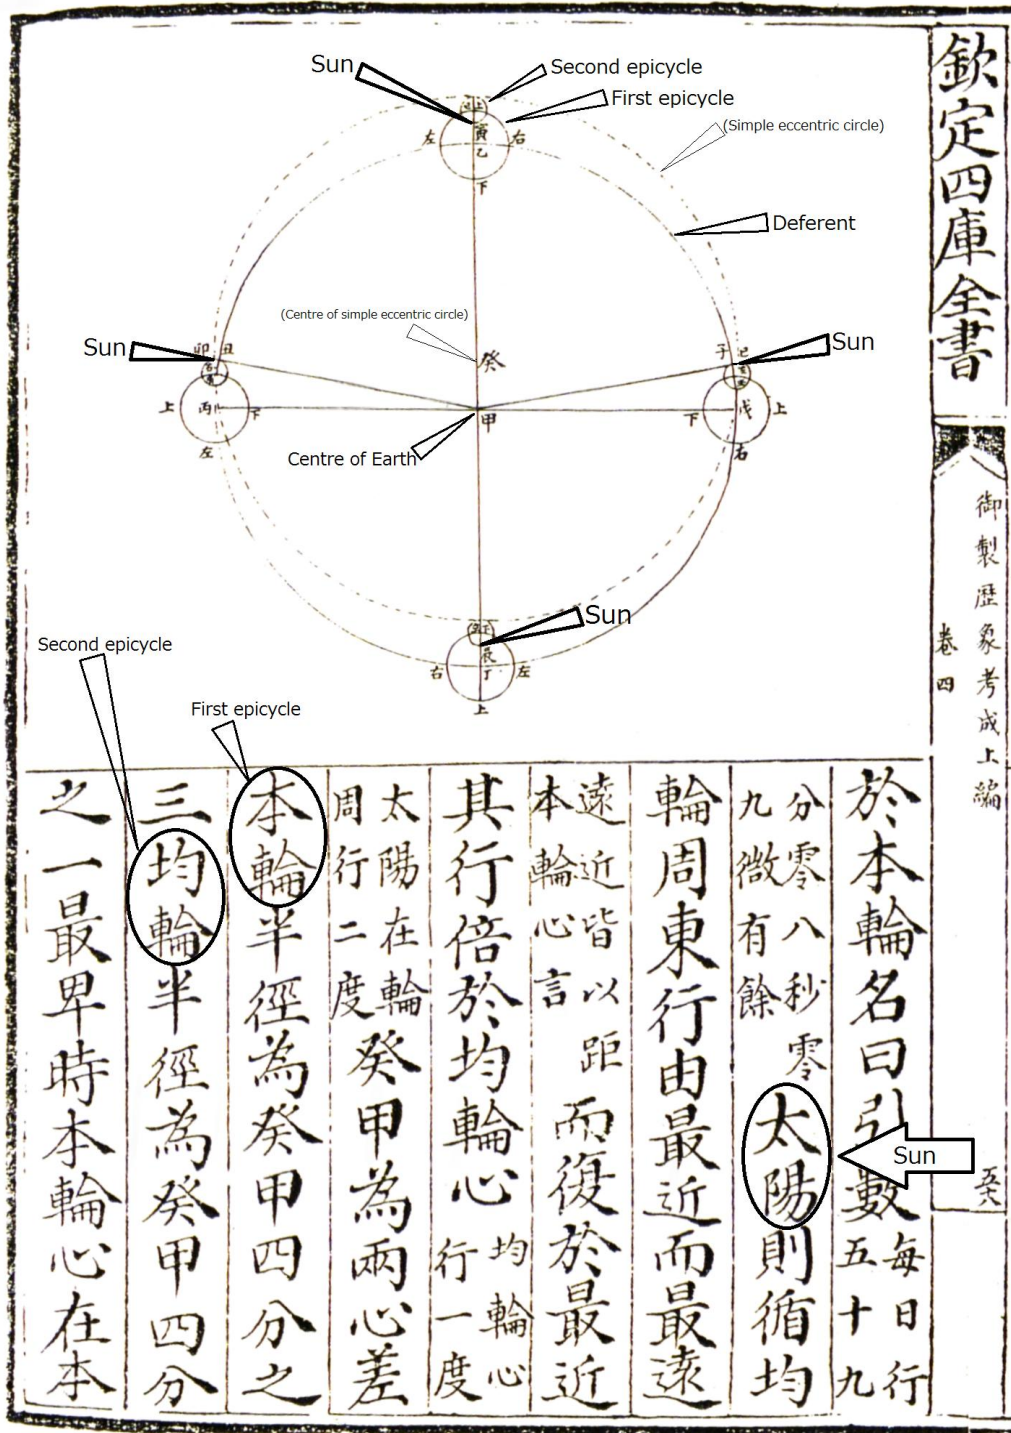 欽定四庫全書
御製歷象考成上編
卷四
Sun
Second epicycle
First epicycle
(Simple eccentric circle)
Deferent
(Centre of simple eccentric circle)
Sun
Sun
Centre of Earth
Sun
Second epicycle
First epicycle
Sun
左
寅
乙
右
下
癸
甲
卯
丑
上
丙
下
左
子
下
戊
上
右
右
辰
丁
左
上
於本輪名曰引數每日行五十九
分零八秒零九微有餘太陽則循均
輪周東行由最近而最遠
遠近皆以距本輪心言而復於最近
其行倍於均輪心均輪心行一度
太陽在輪周行二度癸甲為兩心差
本輪半徑為癸甲四分之
三均輪半徑為癸甲四分
之一最卑時本輪心在本